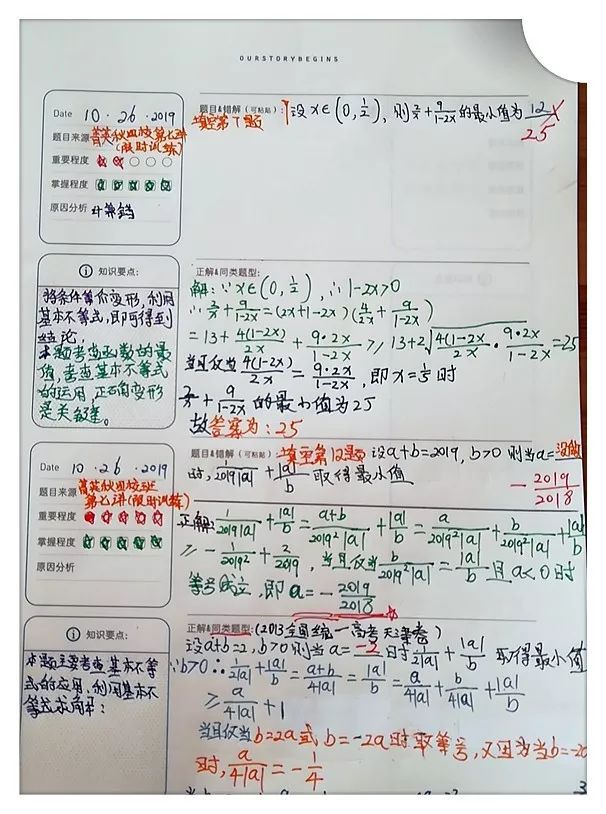 OURSTORYBEGINS
Date 10·26·2019
题目来源 菁英秋四校第七讲
(限时训练)
重要程度
掌握程度
原因分析 计算错
题目&错解(可粘贴): 设x∈(0,1/2), 则2/x+9/(1-2x)的最小值为12
填空第7题
25
知识要点:
将条件等价变形,利用
基本不等式,即可得到
结论,
本题考查函数的最
值,考查基本不等式
的运用,正确变形
是关键。
正解&同类题型:
解:∵x∈(0,1/2), ∴1-2x>0
∴2/x+9/(1-2x)=(2x+1-2x)(4/2x+9/(1-2x))
=13+4(1-2x)/2x+9·2x/(1-2x)≥13+2√(4(1-2x)/2x·9·2x/(1-2x))=25
当且仅当4(1-2x)/2x=9·2x/(1-2x),即x=1/5时
2/x+9/(1-2x)的最小值为25
故答案为:25
Date 10·26·2019
题目来源 菁英秋四校班
第七讲(限时训练)
重要程度
掌握程度
原因分析
题目&错解(可粘贴): 填空第12题 设a+b=2019, b>0 则当a=没做
时,1/2019|a|+|a|/b取得最小值
-2019/2018
正解:1/2019|a|+|a|/b=(a+b)/2019²|a|+|a|/b=a/2019²|a|+b/2019²|a|+|a|/b
≥-1/2019²+2/2019,当且仅当b/2019²|a|=|a|/b且a<0时
等号成立,即a=-2019/2018
知识要点:
本题主要考查基本不等
式的应用,利用基本不
等式求解:
正解&同类题型:(2013全国统一高考天津卷)
设a+b=2,b>0则当a=-2时1/2|a|+|a|/b取得最小值
∵b>0∴1/2|a|+|a|/b=(a+b)/4|a|=|a|/b=a/4|a|+b/4|a|+|a|/b
≥a/4|a|+1
当且仅当b=2a或b=-2a时取等号,又因为当b=-2a
时,a/4|a|=-1/4